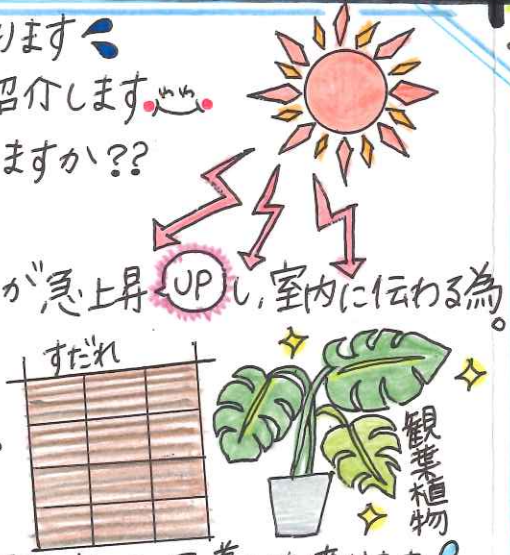 ります
紹介します
ますか??
が急上昇UPし、室内に伝わる為。
すだれ
観葉植物